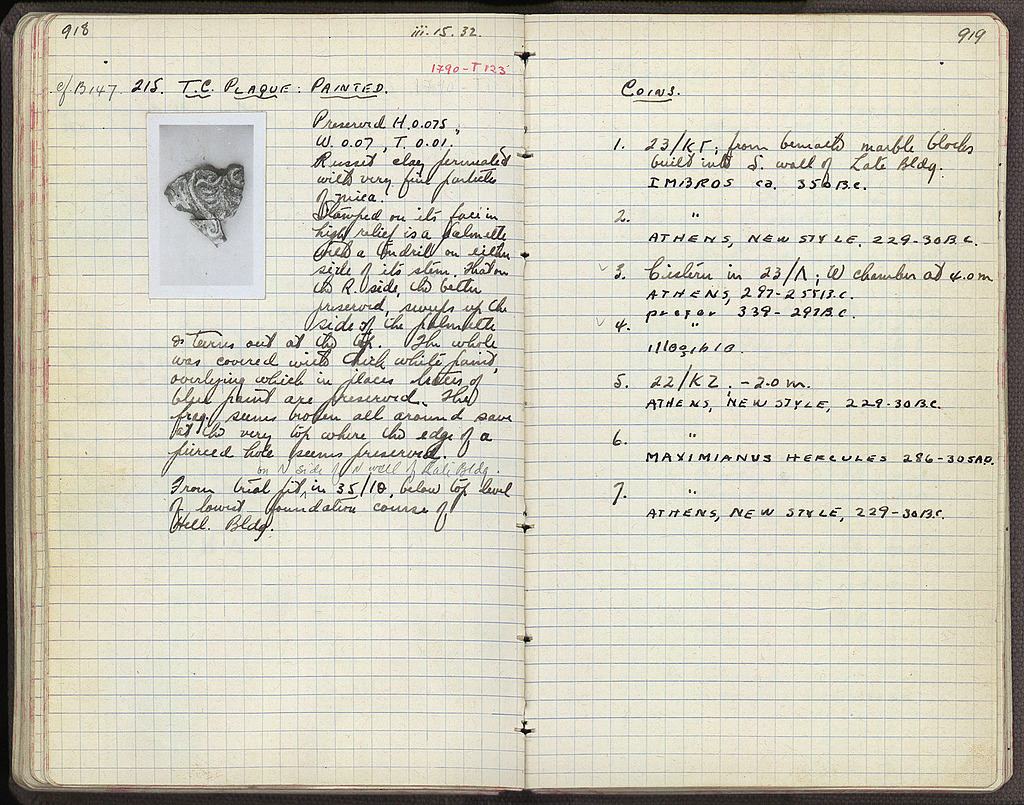 918
iii.15.32.
1790-T123
cf. B147. 215. T.C. PLAQUE: PAINTED.
Preserved H. 0.075,
W. 0.07, T. 0.01.
Russet clay permeated
with very fine particles
of mica.
Stamped on its face in
high relief is a palmette
with a tendril on either
side of its stem. That on
the R. side, the better
preserved, sweeps up the
side of the palmette
& turns out at the top. The whole
was covered with thick white paint,
overlying which in places traces of
blue paint are preserved. The
frag. seems broken all around save
at the very top where the edge of a
pierced hole seems preserved.
on N side of N wall of Late Bldg.
From trial pit, in 35/ΙΘ, below top level
of lowest foundation course of
Hell. Bldg.
919
COINS.
1. 23/ΚΓ; from beneath marble blocks
built into S. wall of Late Bldg.
IMBROS ca. 350 B.C.
2. "
ATHENS, NEW STYLE, 229-30 B.C.
✓ 3. Cistern in 23/Λ; W chamber at 4.0 m
ATHENS, 297-255 B.C.
prefer 339-297 B.C.
✓ 4. "
illegible.
5. 22/ΚΖ; -2.0 m.
ATHENS, NEW STYLE, 229-30 B.C.
6. "
MAXIMIANUS HERCULES 286-305 AD.
7. "
ATHENS, NEW STYLE, 229-30 B.C.